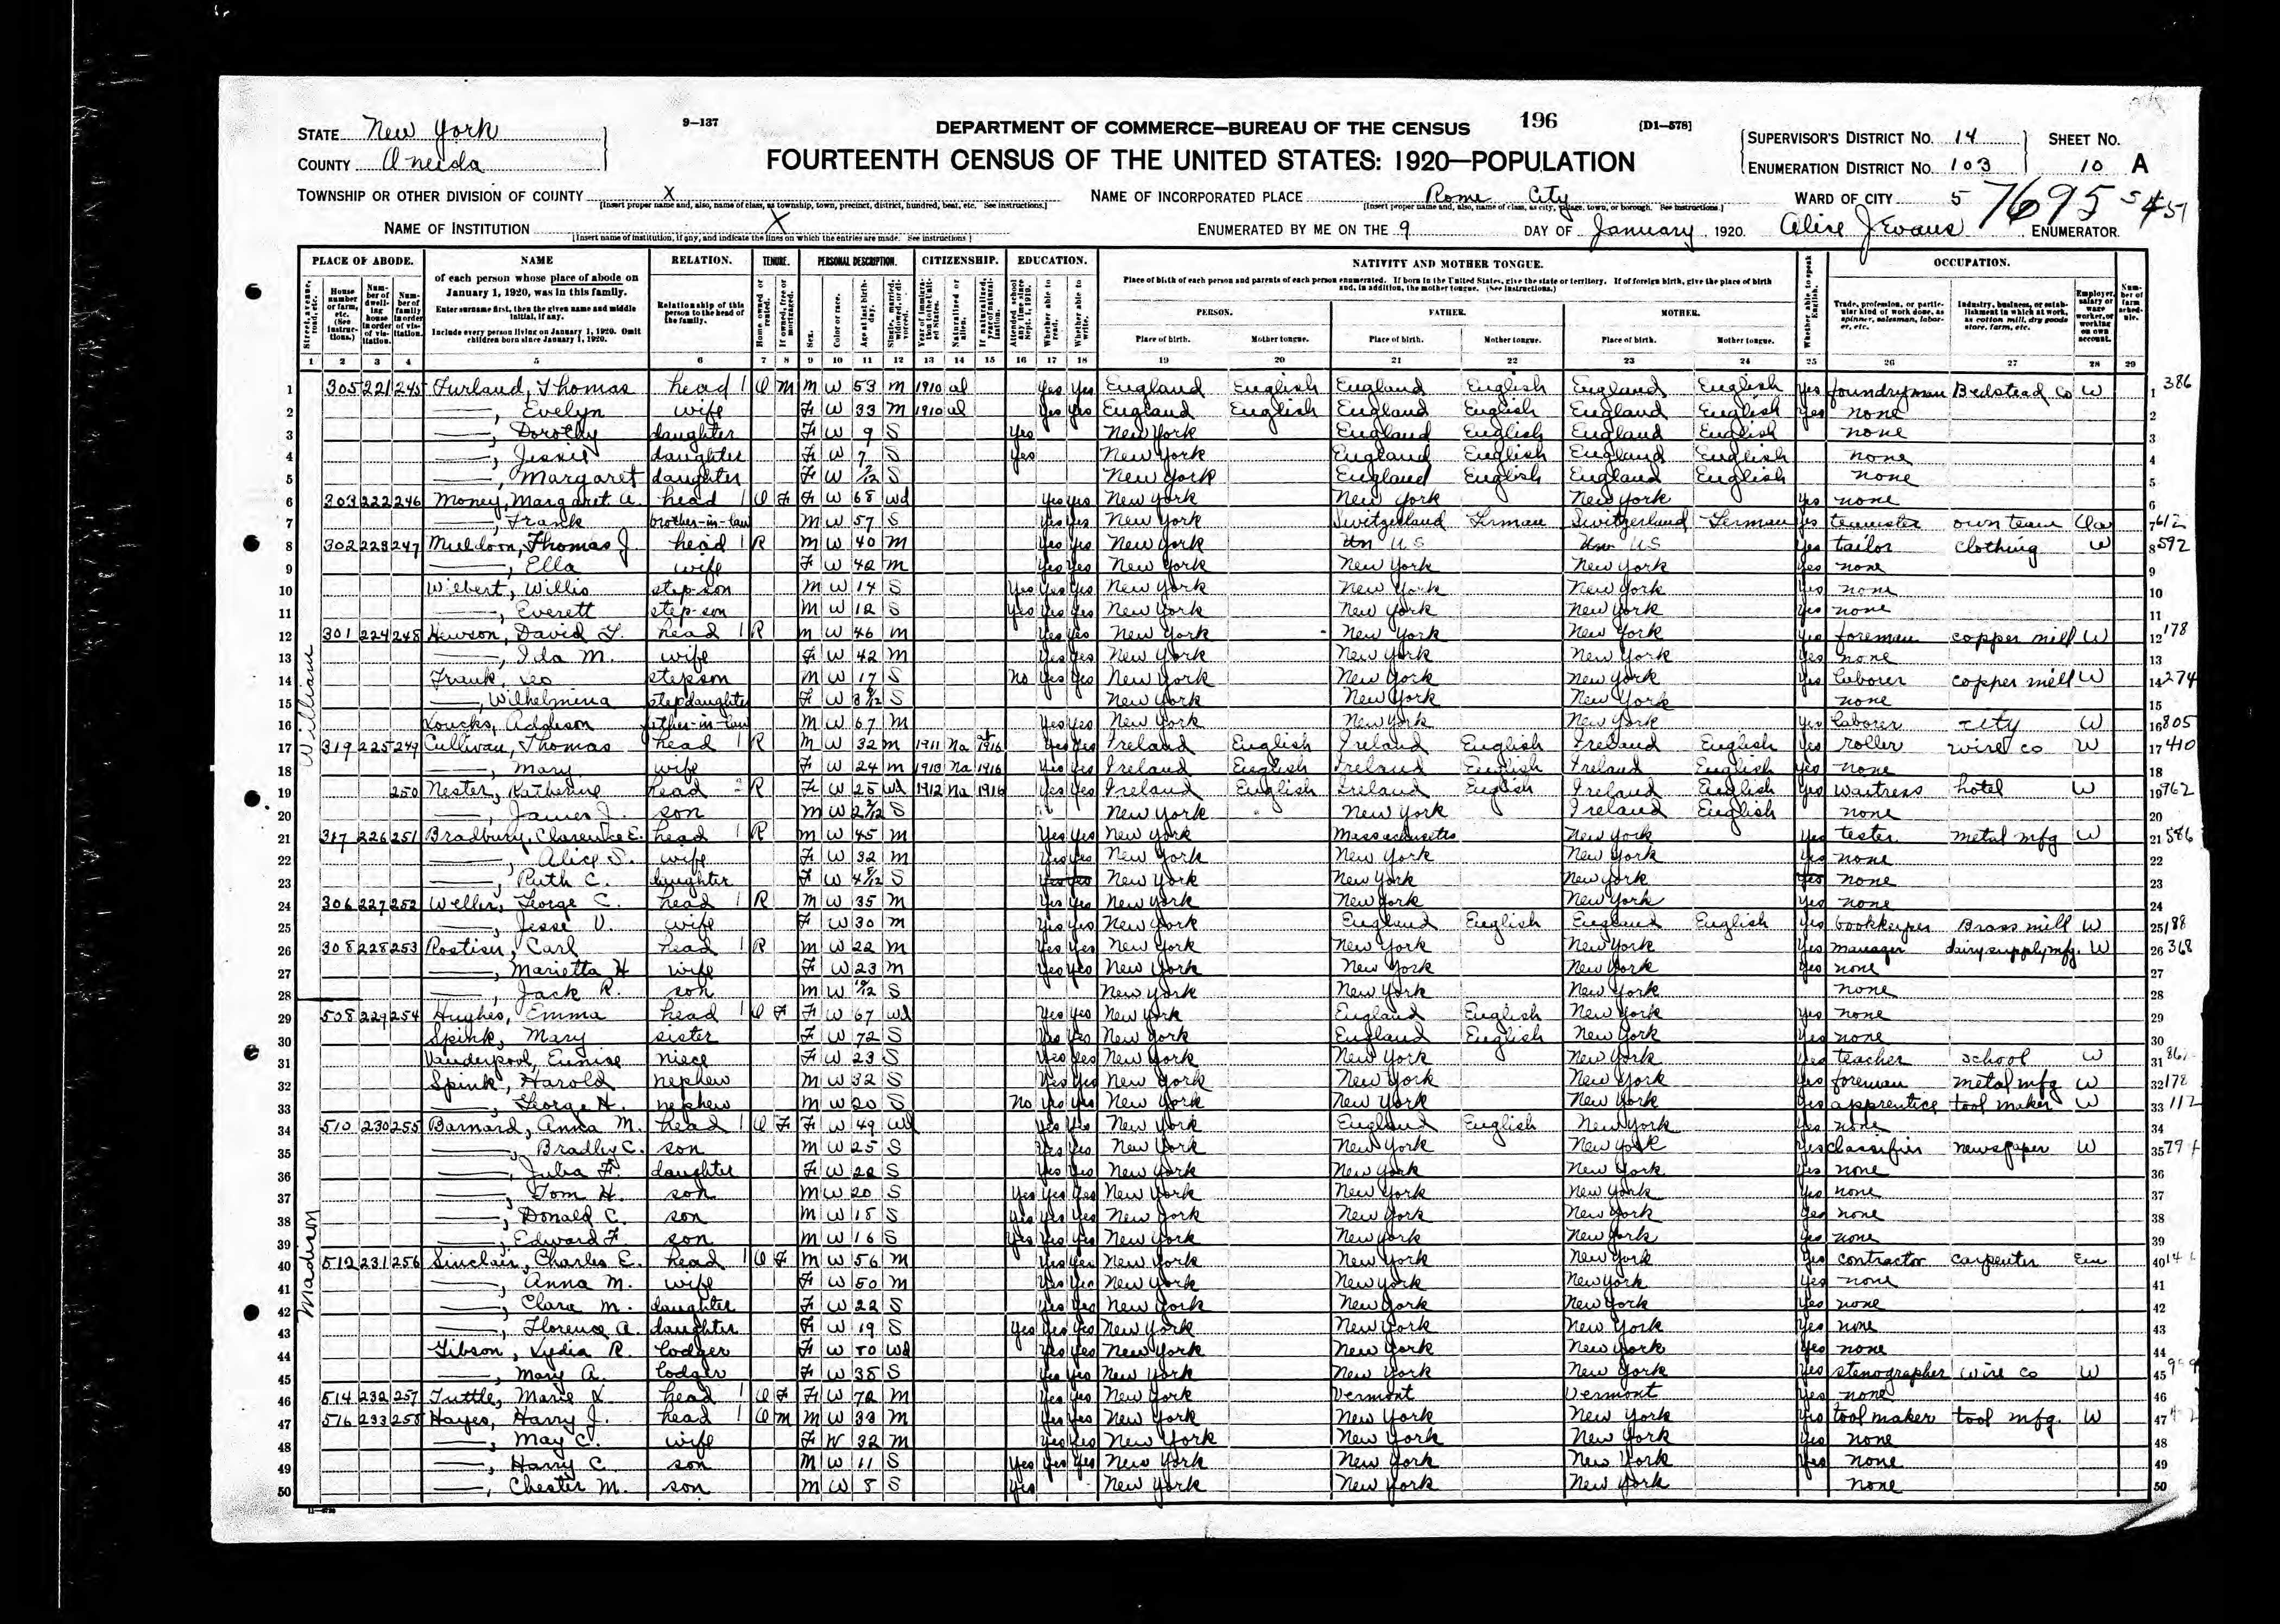 STATE New York
COUNTY Oneida
9-137
DEPARTMENT OF COMMERCE—BUREAU OF THE CENSUS
196
[D1-578]
FOURTEENTH CENSUS OF THE UNITED STATES: 1920—POPULATION
SUPERVISOR'S DISTRICT No. 14
ENUMERATION DISTRICT No. 103
SHEET No.
10 A
TOWNSHIP OR OTHER DIVISION OF COUNTY X
[Insert proper name and, also, name of class, as township, town, precinct, district, hundred, beat, etc. See instructions.]
NAME OF INCORPORATED PLACE Rome City
[Insert proper name and, also, name of class, as city, village, town, or borough. See instructions.]
WARD OF CITY 5
7695
NAME OF INSTITUTION X
[Insert name of institution, if any, and indicate the lines on which the entries are made. See instructions.]
ENUMERATED BY ME ON THE 9 DAY OF January, 1920. Alice J Evans ENUMERATOR.
PLACE OF ABODE. NAME RELATION. TENURE. PERSONAL DESCRIPTION. CITIZENSHIP. EDUCATION. NATIVITY AND MOTHER TONGUE. OCCUPATION.
of each person whose place of abode on January 1, 1920, was in this family.
Enter surname first, then the given name and middle initial, if any.
Include every person living on January 1, 1920. Omit children born since January 1, 1920.
Relationship of this person to the head of the family.
Place of birth of each person and parents of each person enumerated. If born in the United States, give the state or territory. If of foreign birth, give the place of birth and, in addition, the mother tongue. (See instructions.)
PERSON. FATHER. MOTHER.
Place of birth. Mother tongue. Place of birth. Mother tongue. Place of birth. Mother tongue.
1 2 3 4 5 6 7 8 9 10 11 12 13 14 15 16 17 18 19 20 21 22 23 24 25 26 27 28 29
1 305 221 245 Furland, Thomas head 1 O M M W 53 M 1910 al Yes Yes England English England English England English Yes foundryman Bedstead Co W 1 386
2 —, Evelyn wife F W 33 M 1910 al Yes Yes England English England English England English Yes none 2
3 —, Dorothy daughter F W 9 S Yes New York England English England English none 3
4 —, Jessie daughter F W 7 S Yes New York England English England English none 4
5 —, Margaret daughter F W /12 S New York England English England English none 5
6 303 222 246 Money, Margaret A. head 1 O F F W 68 Wd Yes Yes New York New York New York Yes none 6
7 —, Frank brother-in-law M W 57 S Yes Yes New York Switzerland German Switzerland German Yes teamster own team 7 612
8 302 223 247 Muldoon, Thomas J. head 1 R M W 40 M Yes Yes New York U S U S Yes tailor clothing W 8 592
9 —, Ella wife F W 42 M Yes Yes New York New York New York Yes none 9
10 Wilbert, Willis step-son M W 14 S Yes Yes Yes New York New York New York Yes none 10
11 —, Everett step-son M W 12 S Yes Yes Yes New York New York New York Yes none 11
12 301 224 248 Hewson, David L. head 1 R M W 46 M Yes Yes New York New York New York Yes foreman copper mill W 12 178
13 —, Ida M. wife F W 42 M Yes Yes New York New York New York Yes none 13
14 Frank, Leo stepson M W 17 S No Yes Yes New York New York New York Yes laborer copper mill W 14 274
15 —, Wilhelmina stepdaughter F W S New York New York New York none 15
16 Loucks, Addison father-in-law M W 67 M Yes Yes New York New York New York Yes laborer city W 16 805
17 319 225 249 Cullivan, Thomas head 1 R M W 32 M 1911 Na 1916 Yes Yes Ireland English Ireland English Ireland English Yes roller wire co W 17 410
18 —, Mary wife F W 24 M 1913 Na 1916 Yes Yes Ireland English Ireland English Ireland English Yes none 18
19 250 Nester, Katherine head 2 R F W 25 Wd 1912 Na 1916 Yes Yes Ireland English Ireland English Ireland English Yes waitress hotel W 19 762
20 —, James J. son M W S New York New York Ireland English none 20
21 317 226 251 Bradbury, Clarence E. head 1 R M W 45 M Yes Yes New York Massachusetts New York Yes tester metal mfg W 21 586
22 —, Alice S. wife F W 32 M Yes Yes New York New York New York Yes none 22
23 —, Ruth C. daughter F W S Yes Yes New York New York New York Yes none 23
24 306 227 252 Weller, George C. head 1 R M W 35 M Yes Yes New York New York New York Yes none 24
25 —, Jesse V. wife F W 30 M Yes Yes New York England English England English Yes bookkeeper Brass mill W 25 188
26 308 228 253 Rostien, Carl head 1 R M W 22 M Yes Yes New York New York New York Yes manager dairy supply mfg. W 26 368
27 —, Marietta H wife F W 23 M Yes Yes New York New York New York Yes none 27
28 —, Jack R. son M W S New York New York New York none 28
29 508 229 254 Hughes, Emma head 1 O F F W 67 Wd Yes Yes New York England English New York Yes none 29
30 Spink, Mary sister F W 72 S Yes Yes New York England English New York Yes none 30
31 Vanderpool, Eunise niece F W 23 S Yes Yes New York New York New York Yes teacher school W 31
32 Spink, Harold nephew M W 32 S Yes Yes New York New York New York Yes foreman metal mfg W 32 178
33 —, George H. nephew M W 20 S No Yes Yes New York New York New York Yes apprentice tool maker W 33 112
34 510 230 255 Barnard, Anna M. head 1 O F F W 49 Wd Yes Yes New York England English New York Yes none 34
35 —, Bradley C. son M W 25 S Yes Yes New York New York New York Yes classifier newspaper W 35
36 —, Julia F. daughter F W 22 S Yes Yes New York New York New York Yes none 36
37 —, Tom H. son M W 20 S Yes Yes Yes New York New York New York Yes none 37
38 —, Donald C. son M W 18 S Yes Yes Yes New York New York New York Yes none 38
39 —, Edward F. son M W 16 S Yes Yes Yes New York New York New York Yes none 39
40 512 231 256 Sinclair, Charles E. head 1 O F M W 56 M Yes Yes New York New York New York Yes contractor carpenter Em 40
41 —, Anna M. wife F W 50 M Yes Yes New York New York New York Yes none 41
42 —, Clara M. daughter F W 22 S Yes Yes New York New York New York Yes none 42
43 —, Florence A. daughter F W 19 S Yes Yes Yes New York New York New York Yes none 43
44 Gibson, Lydia R. lodger F W Wd Yes Yes New York New York New York Yes none 44
45 —, Mary A. lodger F W 38 S Yes Yes New York New York New York Yes stenographer wire co W 45
46 514 232 257 Tuttle, Marie L head 1 O F F W 72 M Yes Yes New York Vermont Vermont Yes none 46
47 516 233 258 Hayes, Harry J. head 1 O M M W 33 M Yes Yes New York New York New York Yes tool maker tool mfg. W 47
48 —, May C. wife F W 32 M Yes Yes New York New York New York Yes none 48
49 —, Harry C. son M W 11 S Yes Yes Yes New York New York New York Yes none 49
50 —, Chester M. son M W 8 S Yes New York New York New York none 50
William
Madison